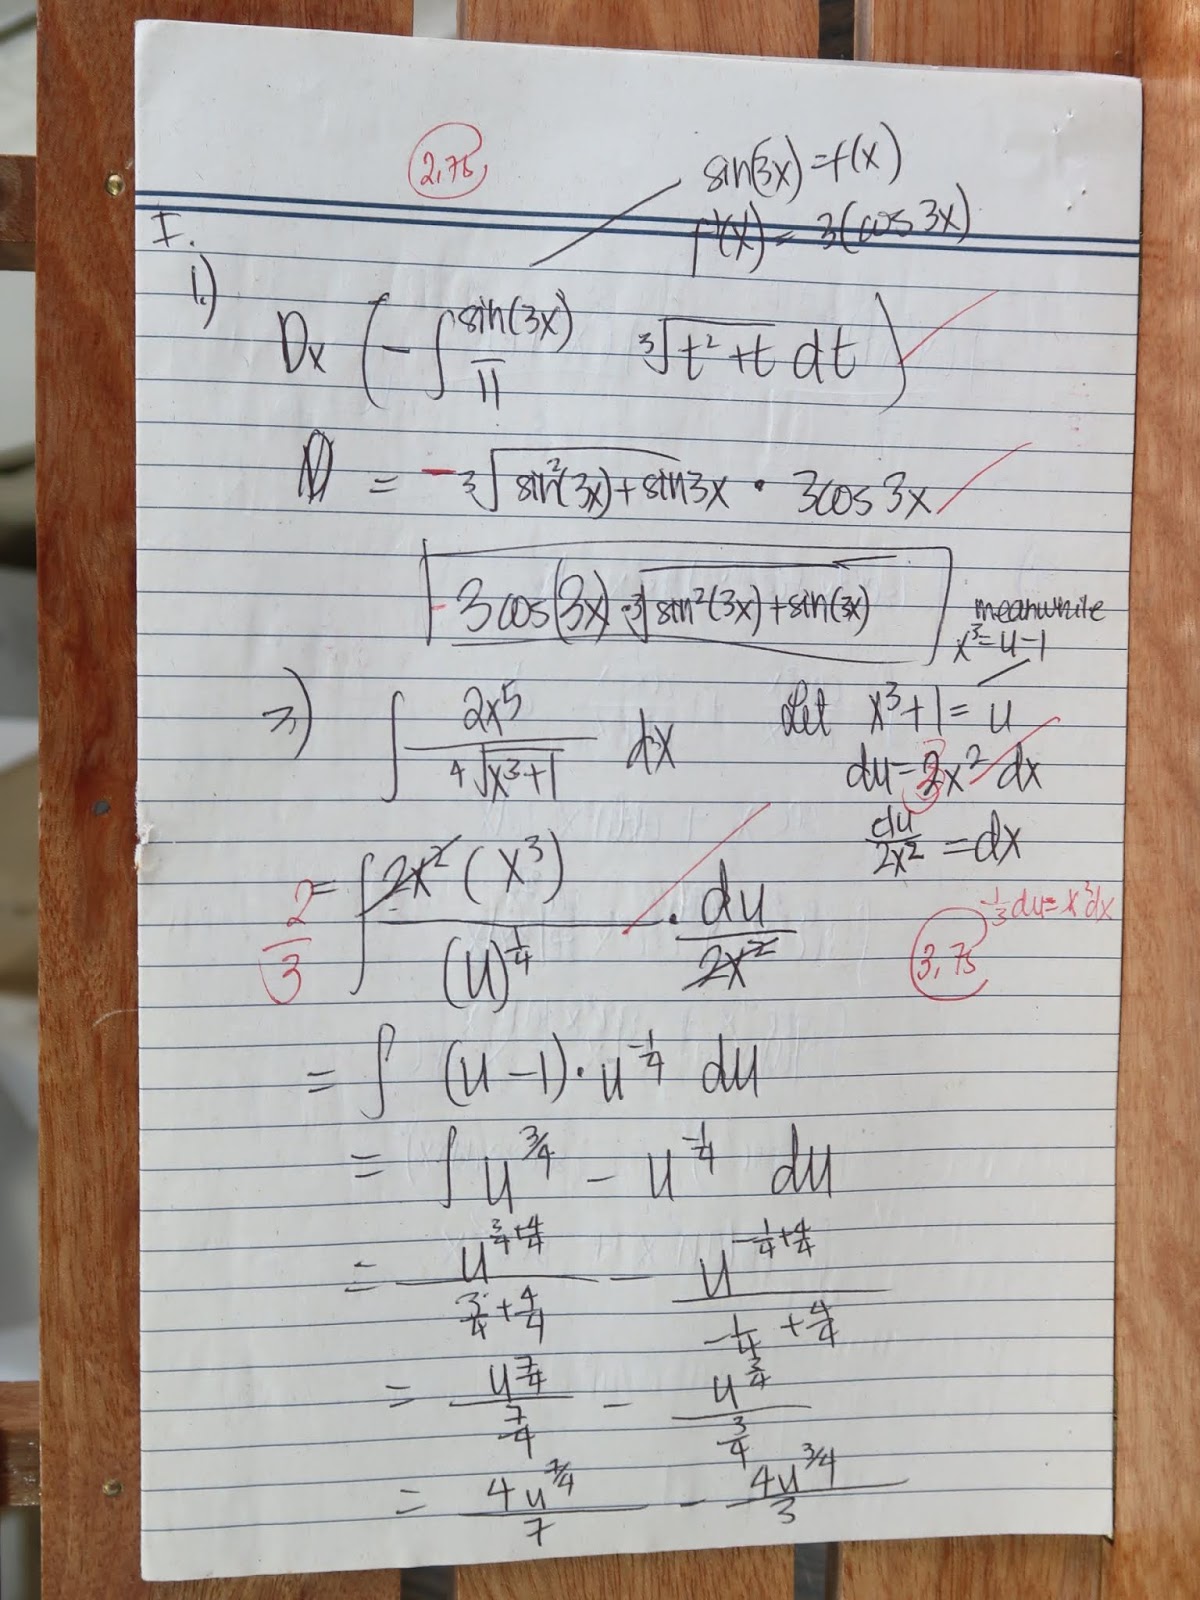 2.75
sin(3x) = f(x)
f'(x) = 3(cos 3x)
I.
1.)
Dx (-∫_π^sin(3x) ∛(t² + t) dt)
= - ∛(sin²(3x) + sin3x) · 3cos 3x
-3cos(3x) · ∛(sin²(3x) + sin(3x))
meanwhile
x³ = u - 1
2) ∫ 2x⁵ / ⁴√(x³+1) dx
Let x³+1 = u
du = 2x² dx
3
du/2x² = dx
2/3
= ∫ 2x²(x³) / (u)^(1/4) · du/2x²
1/3 du = x² dx
3.75
= ∫ (u - 1) · u^(-1/4) du
= ∫ u^(3/4) - u^(-1/4) du
= u^(3/4 + 4/4) / (3/4 + 4/4) - u^(-1/4 + 4/4) / (-1/4 + 4/4)
= u^(7/4) / (7/4) - u^(3/4) / (3/4)
= 4u^(7/4) / 7 - 4u^(3/4) / 3